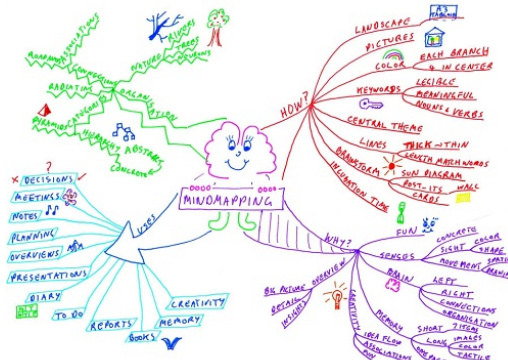 MINDMAPPING
HOW?
LANDSCAPE
A3
PICTURES
COLOR
EACH BRANCH
4 IN CENTER
KEYWORDS
LEGIBLE
MEANINGFUL
NOUNS & VERBS
CENTRAL THEME
LINES
THICK → THIN
LENGTH MATCH WORDS
BRAINSTORM
SUN DIAGRAM
POST-ITS
WALL
CARDS
INCUBATION TIME
WHY?
FUN
SENSES
CONCRETE
SIGHT
COLOR
SHAPE
MOVEMENT
BRAIN
LEFT
RIGHT
CONNECTIONS
ORGANISATION
MEMORY
SHORT
7 ITEM
LONG
IMAGES
COLOR
TACTILE
CREATIVITY
IDEA FLOW
ASSOCIATIONS
FUN
OVERVIEW
BIG PICTURE
DETAIL
INSIGHT
USES
?
X DECISIONS
MEETINGS
NOTES
PLANNING
OVERVIEWS
PRESENTATIONS
DIARY
TO DO
REPORTS
BOOKS
MEMORY
CREATIVITY
ORGANISATION
NATURE
RIVERS
TREES
NEURONS
ASSOCIATIONS
ROADMAP
RADIATING
CATEGORY
PYRAMIDS
HIERARCHY
ABSTRACT
CONCRETE